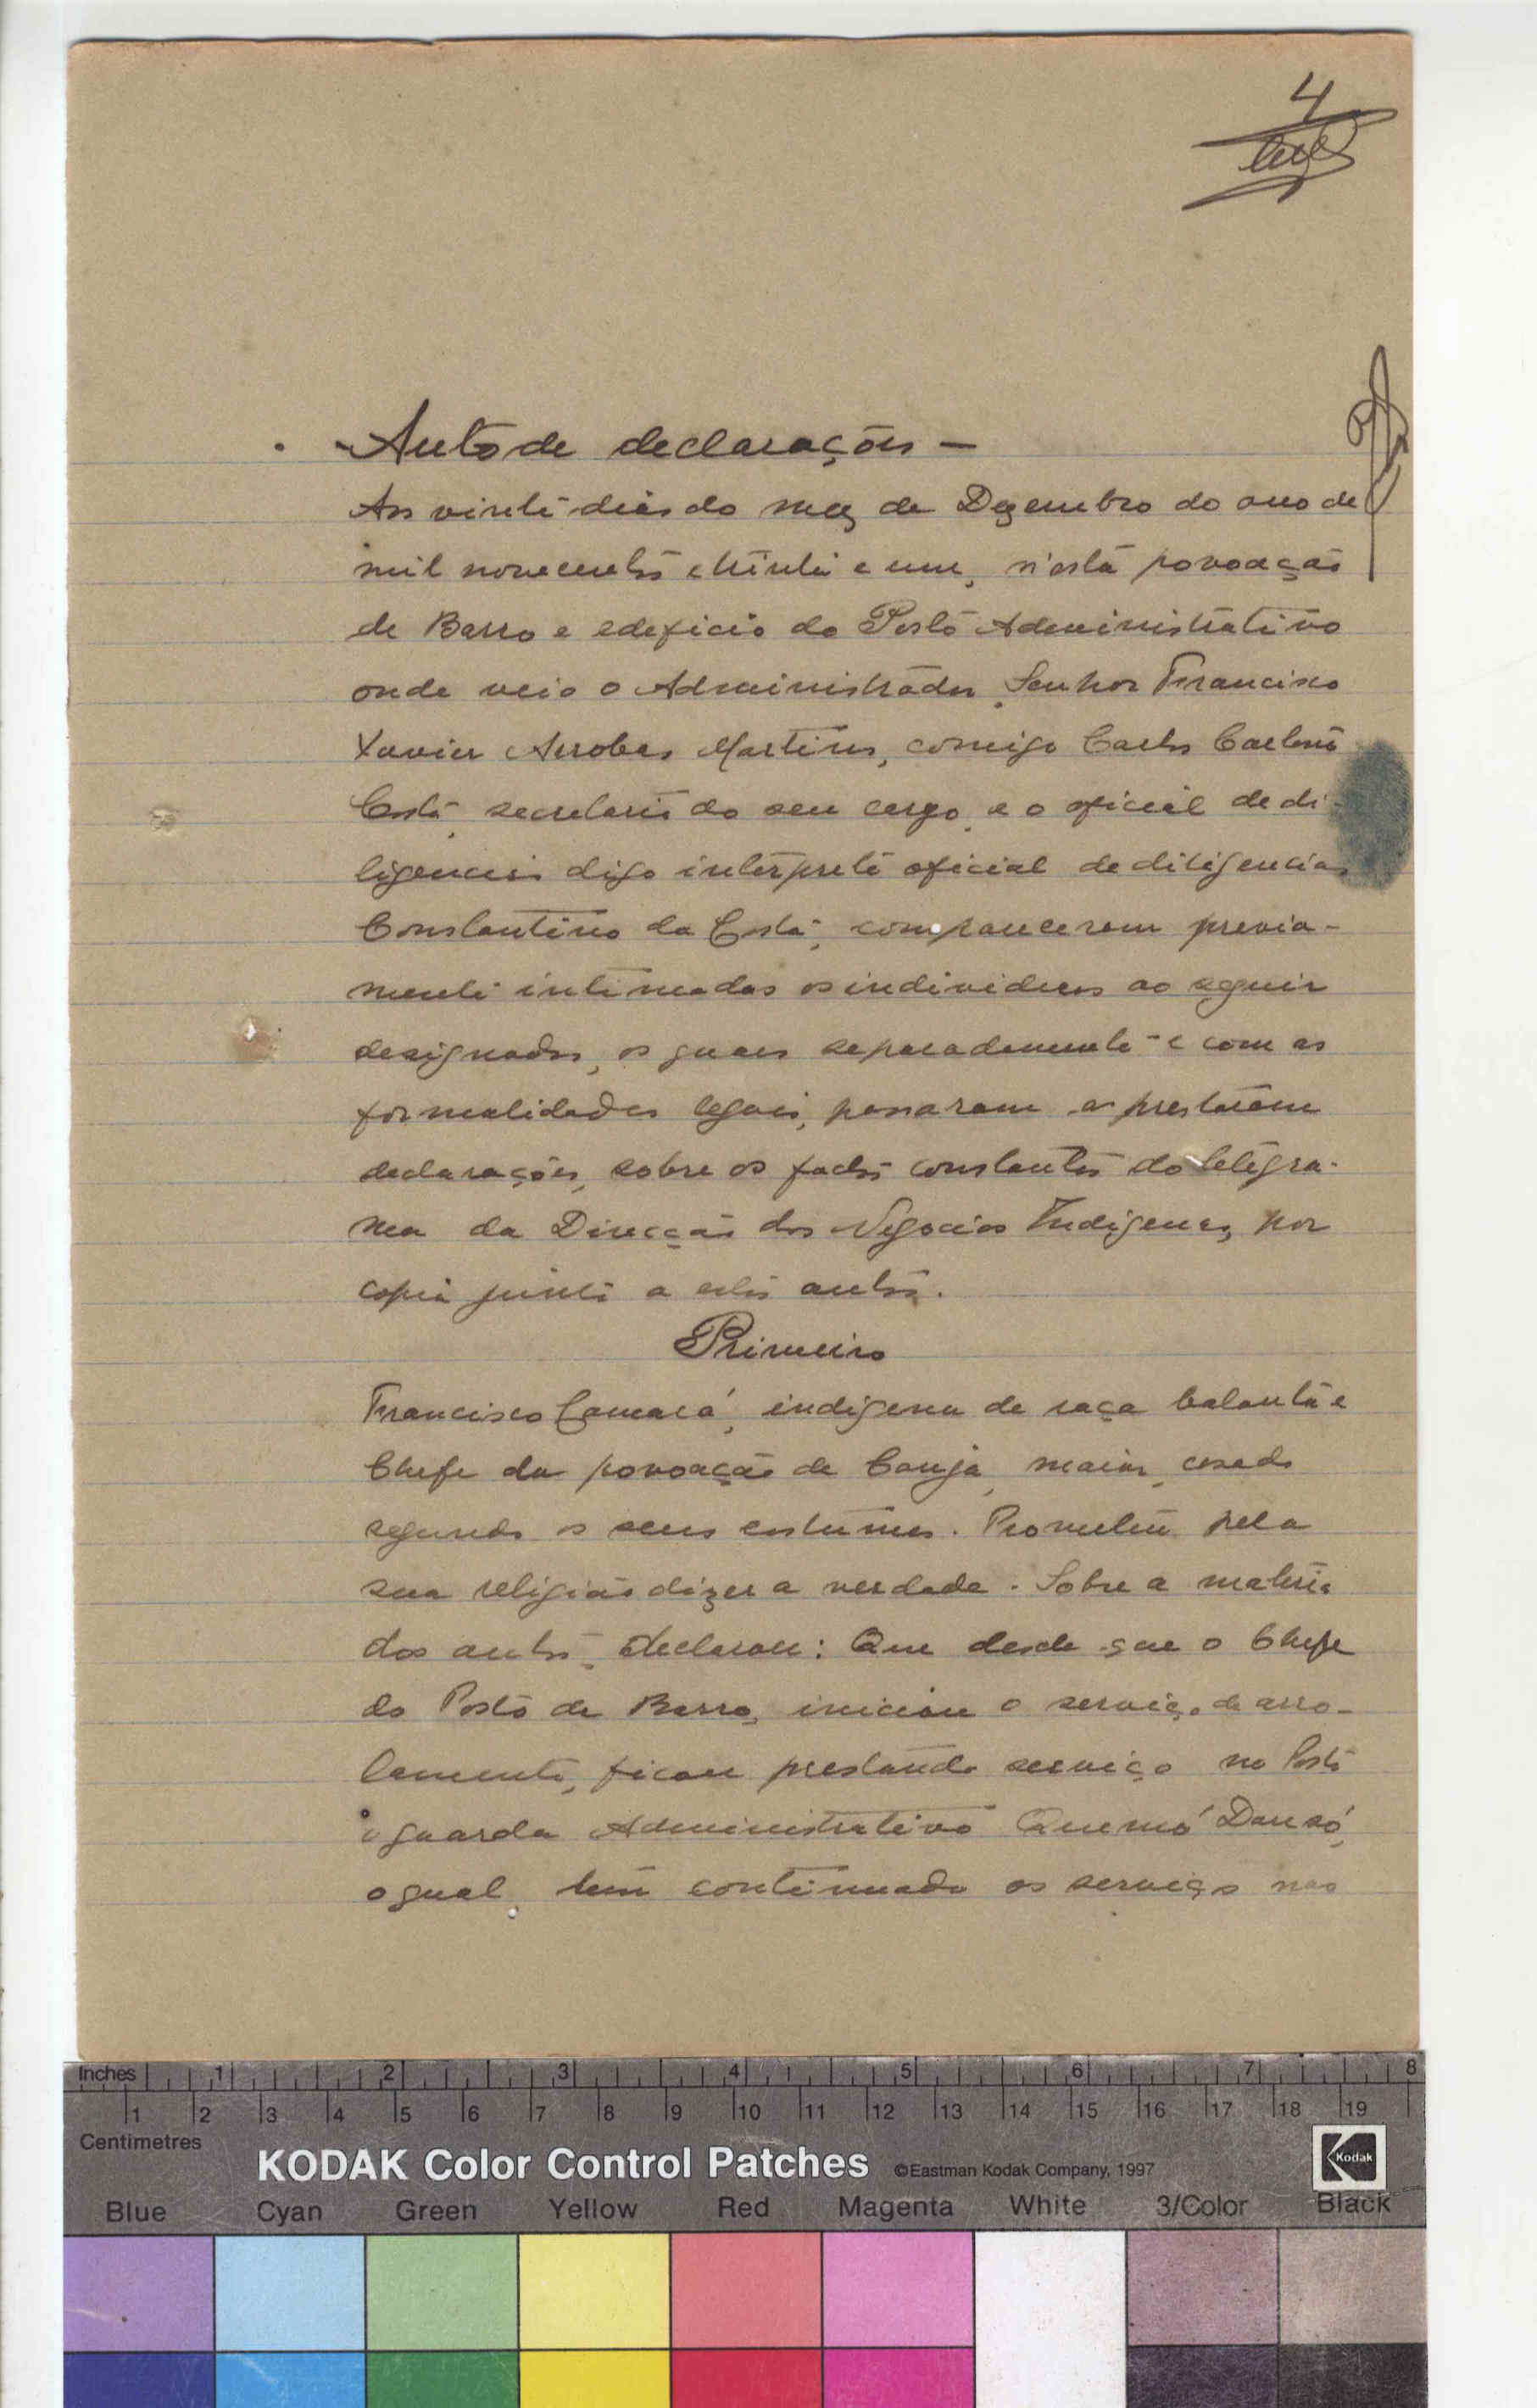 4
Auto de declarações —
Aos vinte dias do mez de Dezembro do ano de
mil novecentos e trinta e um, n'esta povoação
de Barro e edeficio do Posto Administrativo
onde veio o Administrador, Senhor Francisco
Xavier Arrobas Martins, comigo Carlos
Costa, secretario do seu cargo, e o oficial de di-
ligencias digo interprete oficial de diligencias
Constantino da Costa, compareceram previa-
mente intimados os individuos ao seguir
designados, os quaes separadamente e com as
formalidades legais, passaram a prestarem
declarações, sobre os factos constantes do telegra-
ma da Direcção dos Negocios Indigenas, por
copia junta a estes autos.
Primeiro
Francisco Camará, indigena de raça balanta e
Chefe da povoação de Canja, maior, casado
segundo os seus costumes. Prometeu pela
sua religião dizer a verdade. Sobre a materia
dos autos, declarou: Que desde que o Chefe
do Posto de Barro, iniciou o serviço de arro-
lamento, ficou prestando serviço no Posto
o guarda Administrativo Quemó Dansó,
o qual, tem continuado os serviço nas
Inches 1 2 3 4 5 6 7 8
1 2 3 4 5 6 7 8 9 10 11 12 13 14 15 16 17 18 19
Centimetres
KODAK Color Control Patches ©Eastman Kodak Company, 1997 Kodak
Blue Cyan Green Yellow Red Magenta White 3/Color Black